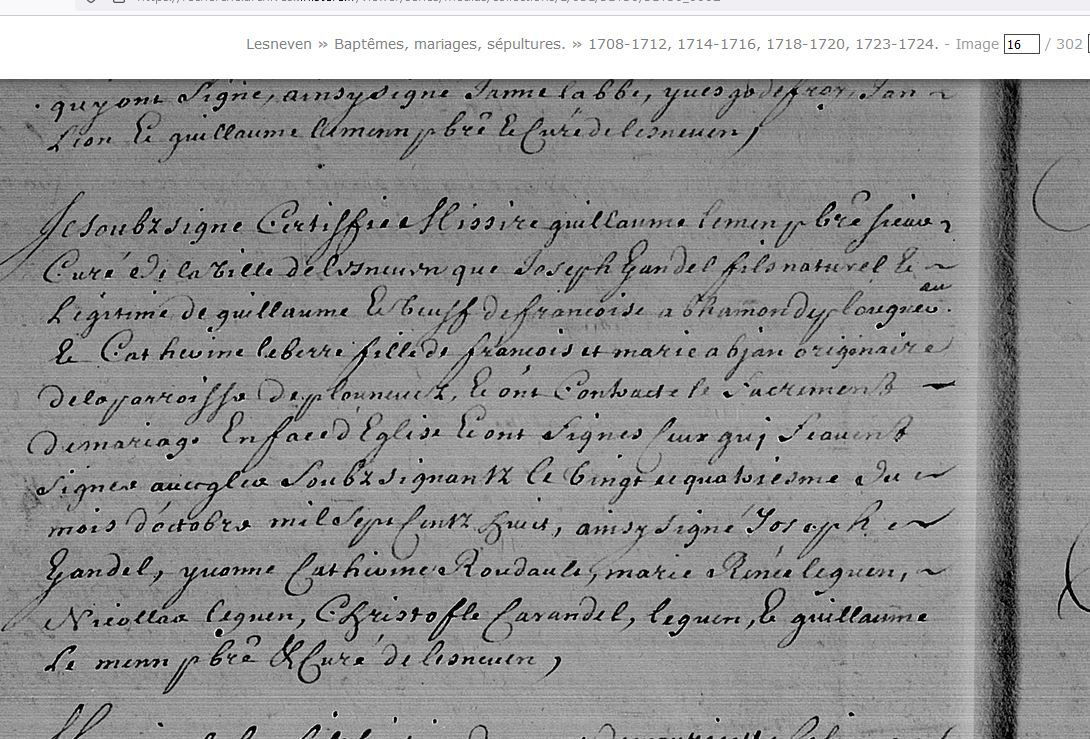 Lesneven » Baptêmes, mariages, sépultures. » 1708-1712, 1714-1716, 1718-1720, 1723-1724. - Image 16 / 302
quy ont signe, ainsy signe Janne labbé, yves godefroy, Jan
Lion Et guillaume lemenn pbrê Et Curé de lesneven,
Je soubzsigne Certiffie Missire guillaume lemen pbrê
Curé de la ville de lesneven que Joseph Gandel fils naturel Et
Légitime de guillaume Et de francoise
Et Catherine leberre fille de francois et marie abjan originaire
de la parroisse de plouneuez, Et ont Contracte le Sacrement
de mariage En face d'Eglise Et ont Signes Ceux quj Scauent
signer auecq les Soubzsignantz le vingt et quatriesme du
mois d'octobre mil Sept Centz huit, ainsy signé Joseph
Gandel, yvonne Catherinne Roudault, marie Renée leguen,
Nicollas leguen, Christofle Carandel, leguen, Et guillaume
Le menn pbrê & Curé de lesneven,